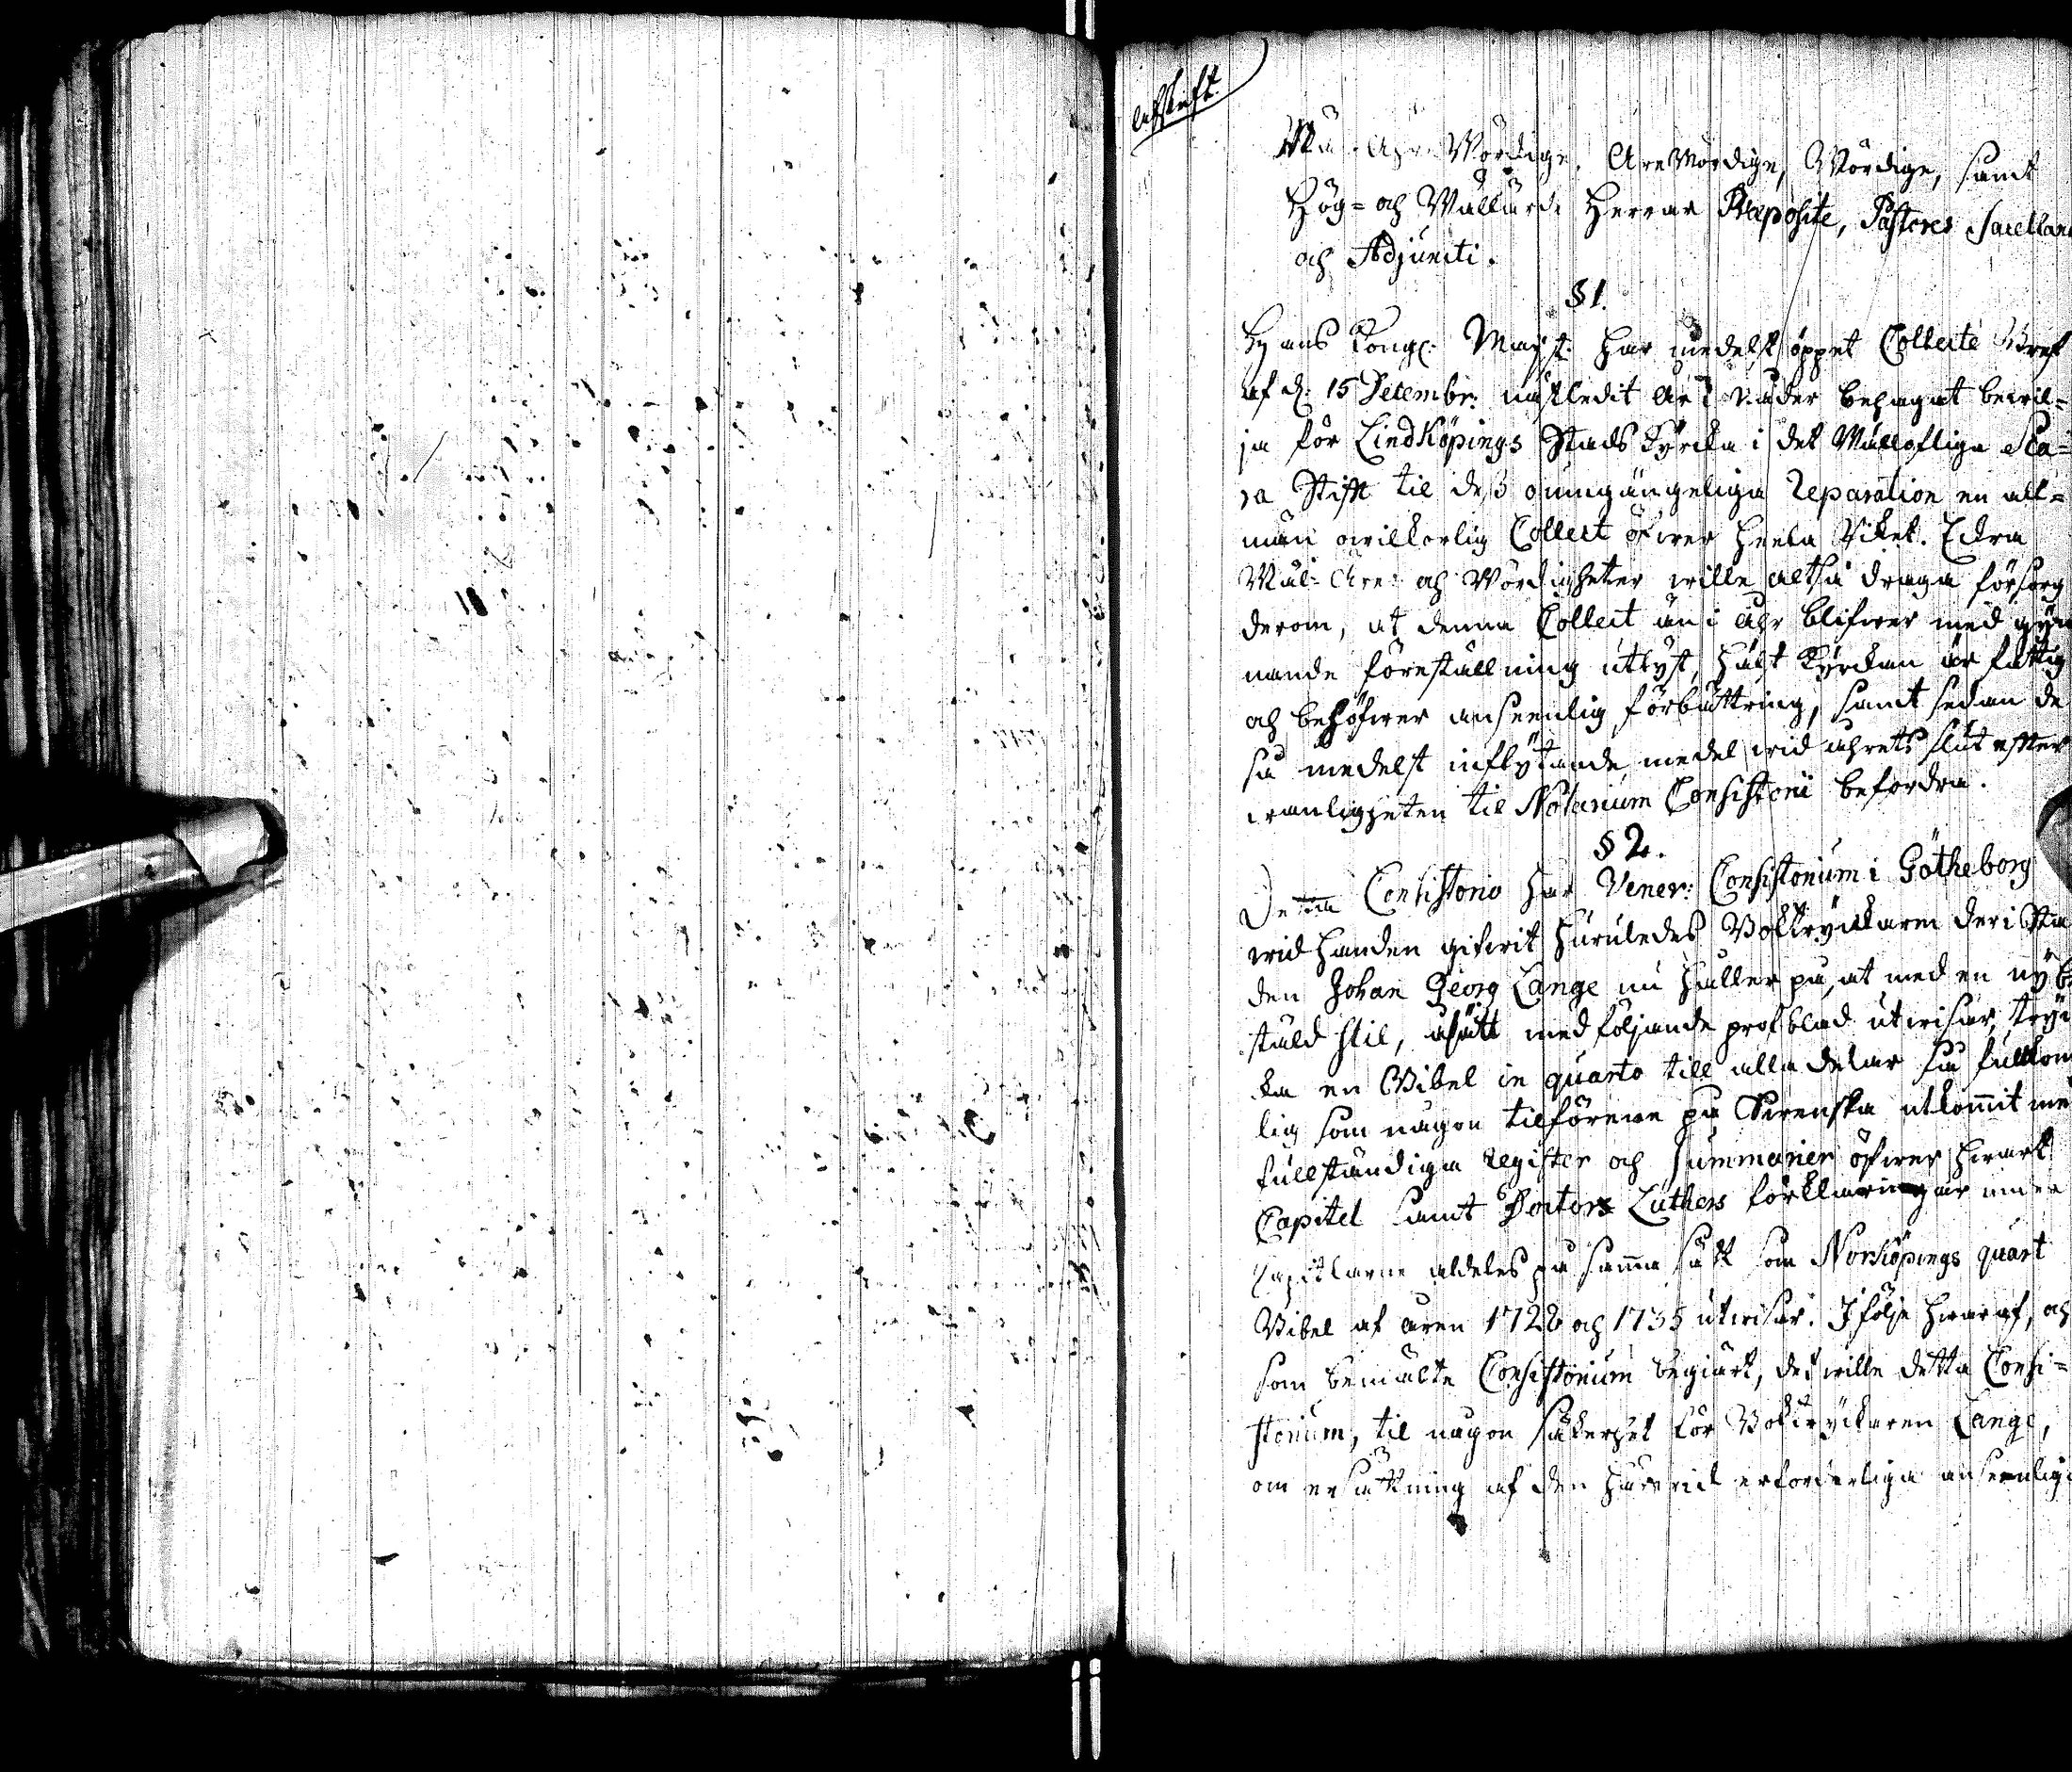 afskrift.
Ahre Wördige, Äre Wördige, Wördige, samt
Hög= och Wällärde Herrar Præposite, Pastores Sacellani
och Adjuncti.
§ 1.
Hans Kongl: Maijst: har medelst öppet Collecte Bref
af d: 15 Decembr: nästledit år i nåder behagat bewil=
ja för Lindköpings Stads Kyrcka i det Wällofliga Ska=
ra Stift til deß oumgängeliga Reparation en all=
män owilkorlig Collect öfwer heela Riket. Edra
Wäl= Äre= och Wördigheter wille altså draga försorg
derom, at denna Collect än i åhr blifwer med
nande föreställning utlyst, hälst Kyrckan är fattig
och behöfwer anseenlig förbättring, samt sedan de
så medelst inflytande medel wid åhrets slut efter
wanligheten til Notarium Consistorii befordra.
§ 2.
Detta Consistorio har Vener: Consistorium i Götheborg
wid handen gifwit huruledes Boktryckaren der i Sta
den Johan Georg Lange nu håller på, at med en ny be
stäld stil, såsätt medföljande profblad utwisar, tryc
ka en Bibel in quarto till alla delar så fullkom
lig som någon tilförene på Swenska utkommit me
fullständiga register och Summarier öfwer hwart
Capitel samt Doctors Luthers förklaringar under
Capitlarne aldeles på samma sätt som Norköpings quart
Bibel af åren 1728 och 1735 utwisar. I följe hwaraf, och
som bemälte Consistorium begiärt, det wille detta Consi=
storium, til någon säkerhet för Boktryckaren Lange,
om ersättning af den härwid erforderliga anseenliga